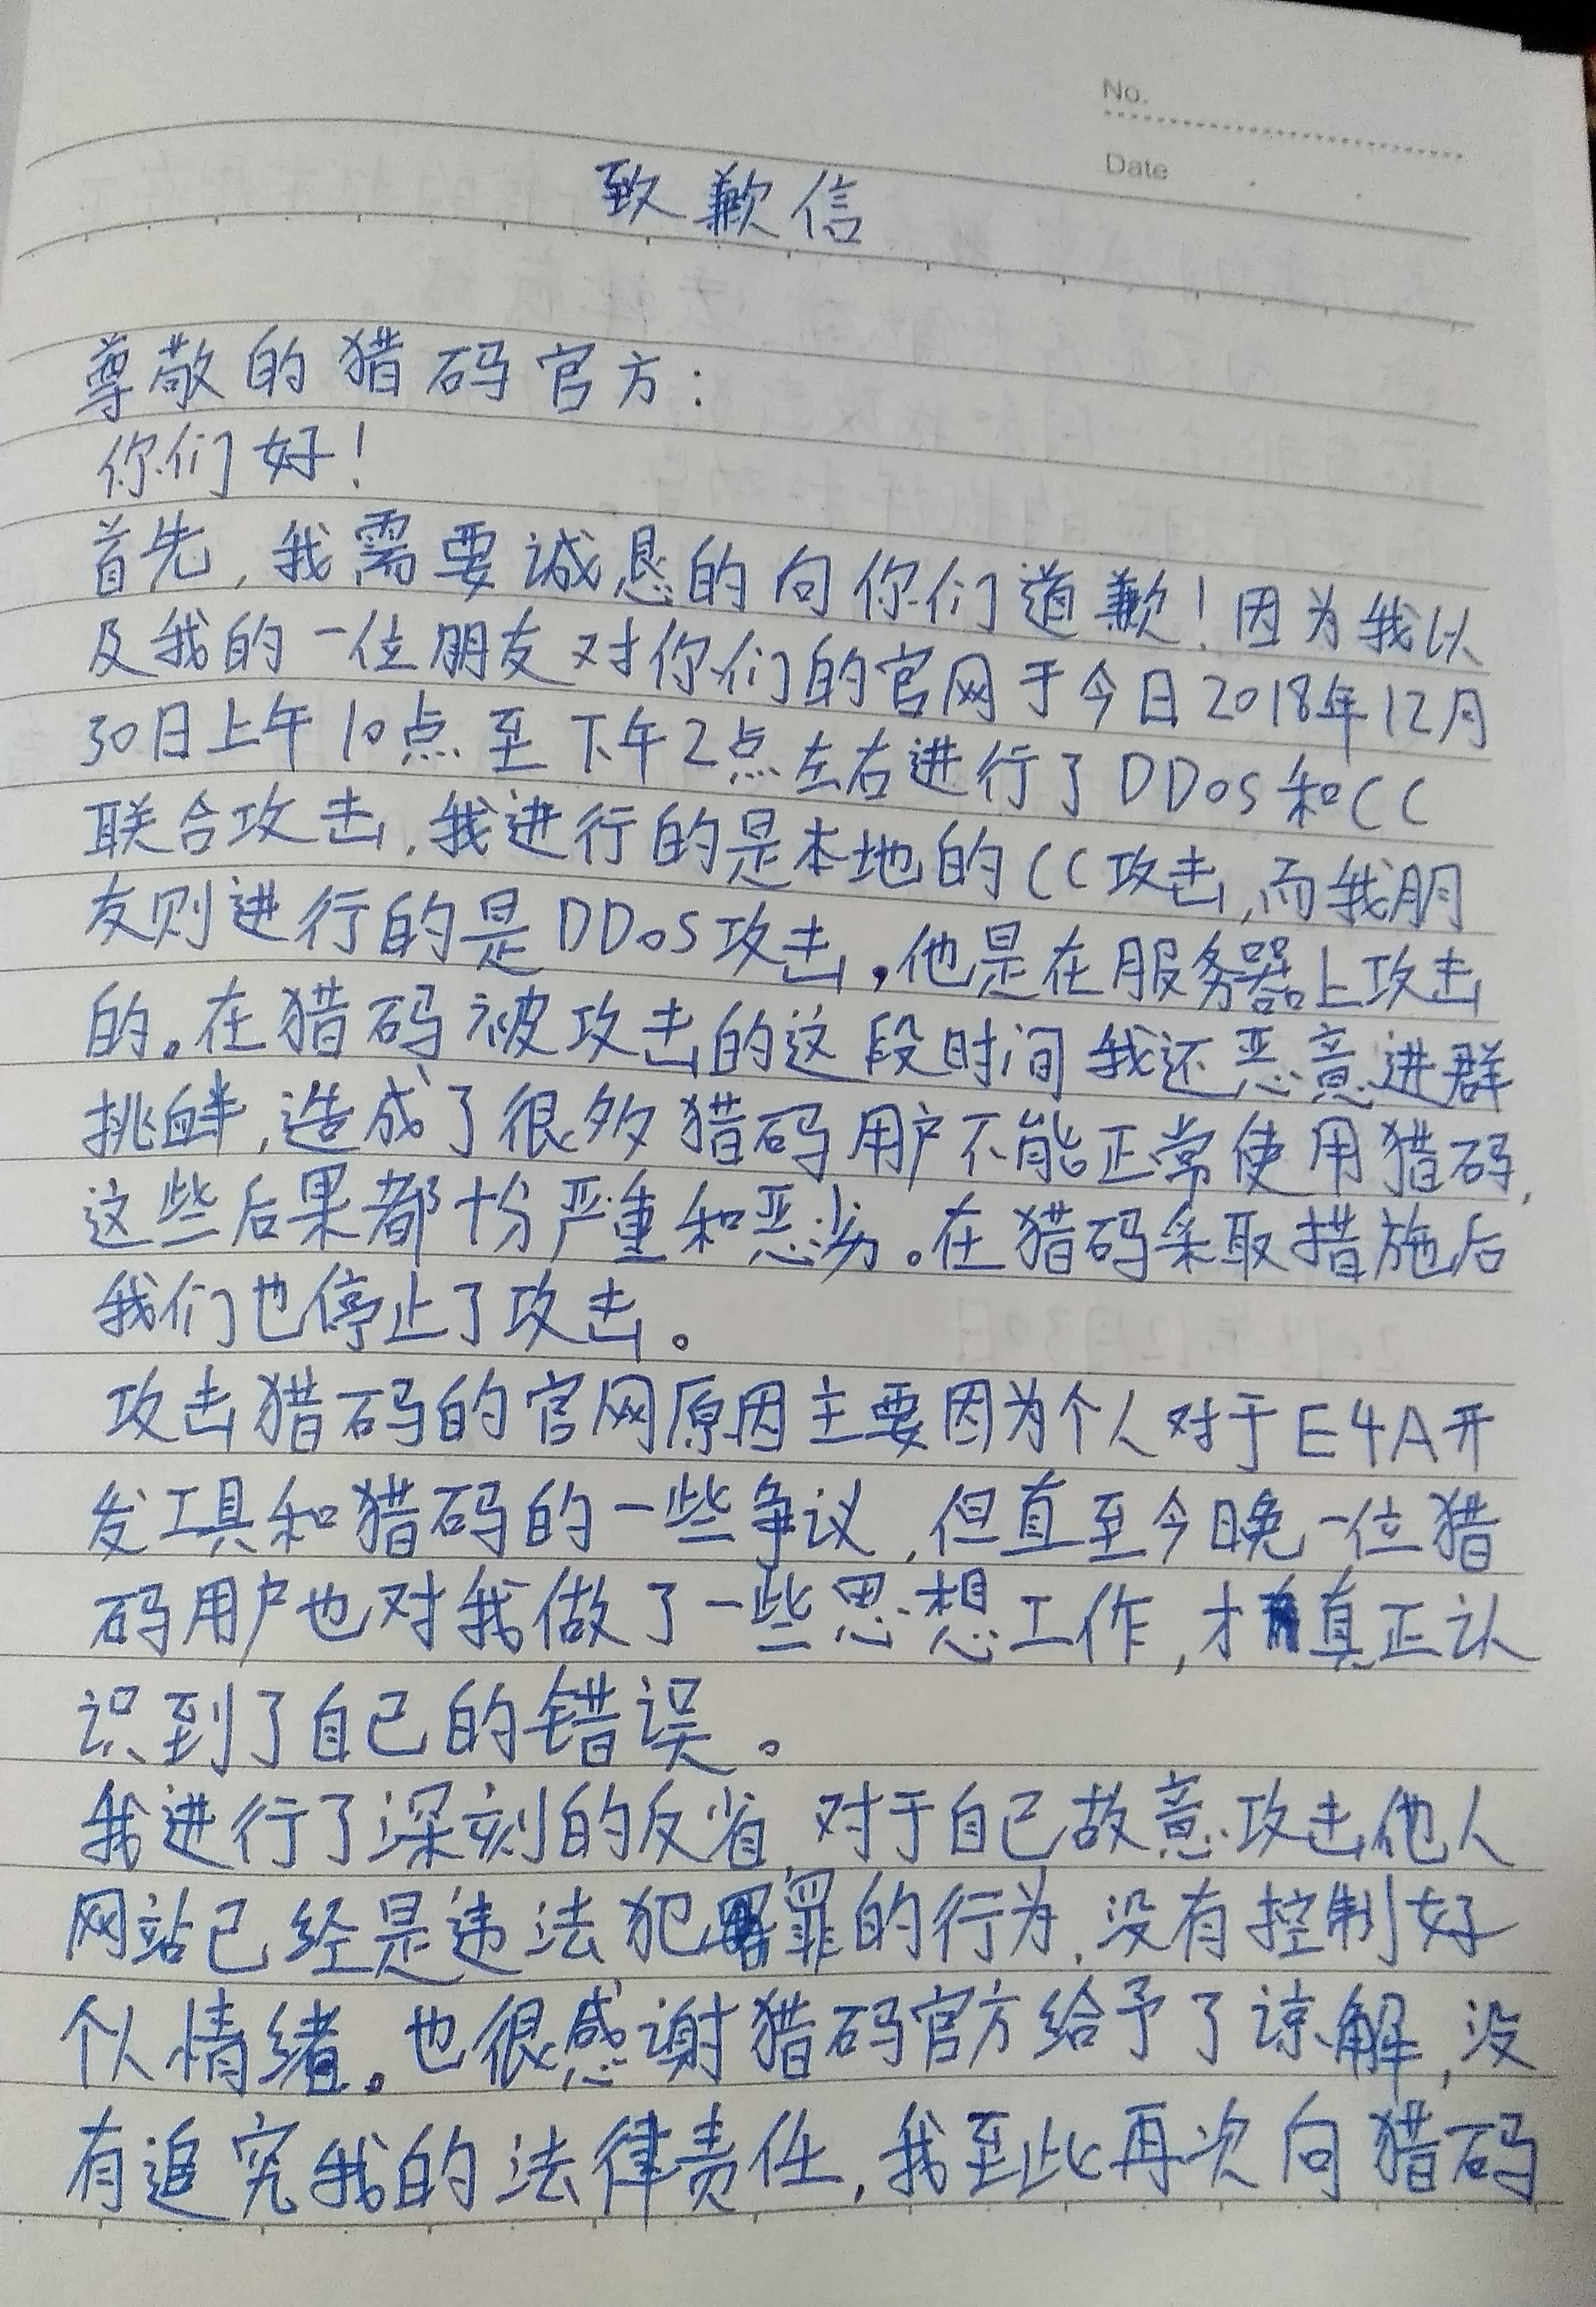 No.
Date
致歉信
尊敬的猎码官方:
你们好!
首先,我需要诚恳的向你们道歉!因为我以
及我的一位朋友对你们的官网于今日2018年12月
30日上午10点至下午2点左右进行了DDoS和CC
联合攻击,我进行的是本地的CC攻击,而我朋
友则进行的是DDoS攻击,他是在服务器上攻击
的。在猎码被攻击的这段时间我还恶意进群
挑衅,造成了很多猎码用户不能正常使用猎码,
这些后果都十份严重和恶劣。在猎码采取措施后
我们也停止了攻击。
攻击猎码的官网原因主要因为个人对于E4A开
发工具和猎码的一些争议,但直至今日晚一位猎
码用户也对我做了一些思想工作,才真正认
识到了自己的错误。
我进行了深刻的反省,对于自己故意攻击他人
网站已经是违法犯罪的行为,没有控制好
个人情绪。也很感谢猎码官方给予了谅解,没
有追究我的法律责任,我至此再次向猎码